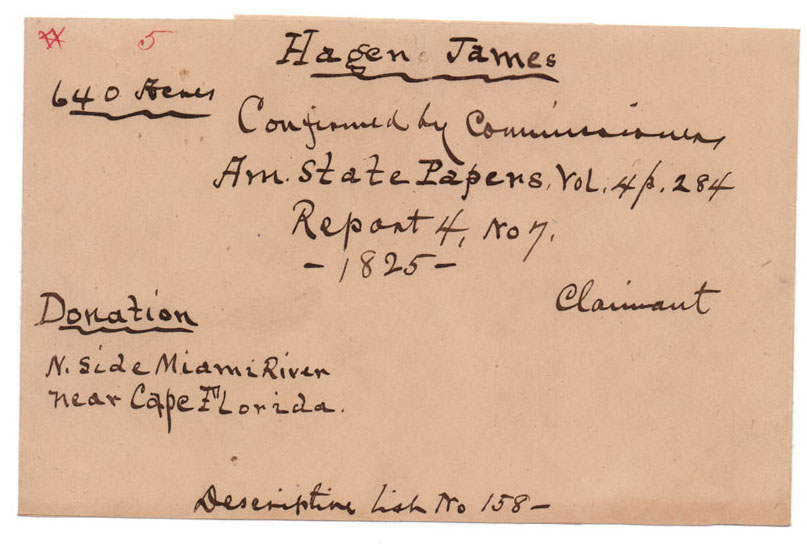 5
Hagen James
640 Acres
Confirmed by Commissioners
Am. State Papers, Vol. 4 p. 284
Report 4, No 7.
- 1825 -
Claimant
Donation
N. Side Miami River
near Cape Florida.
Descriptive List No 158 -